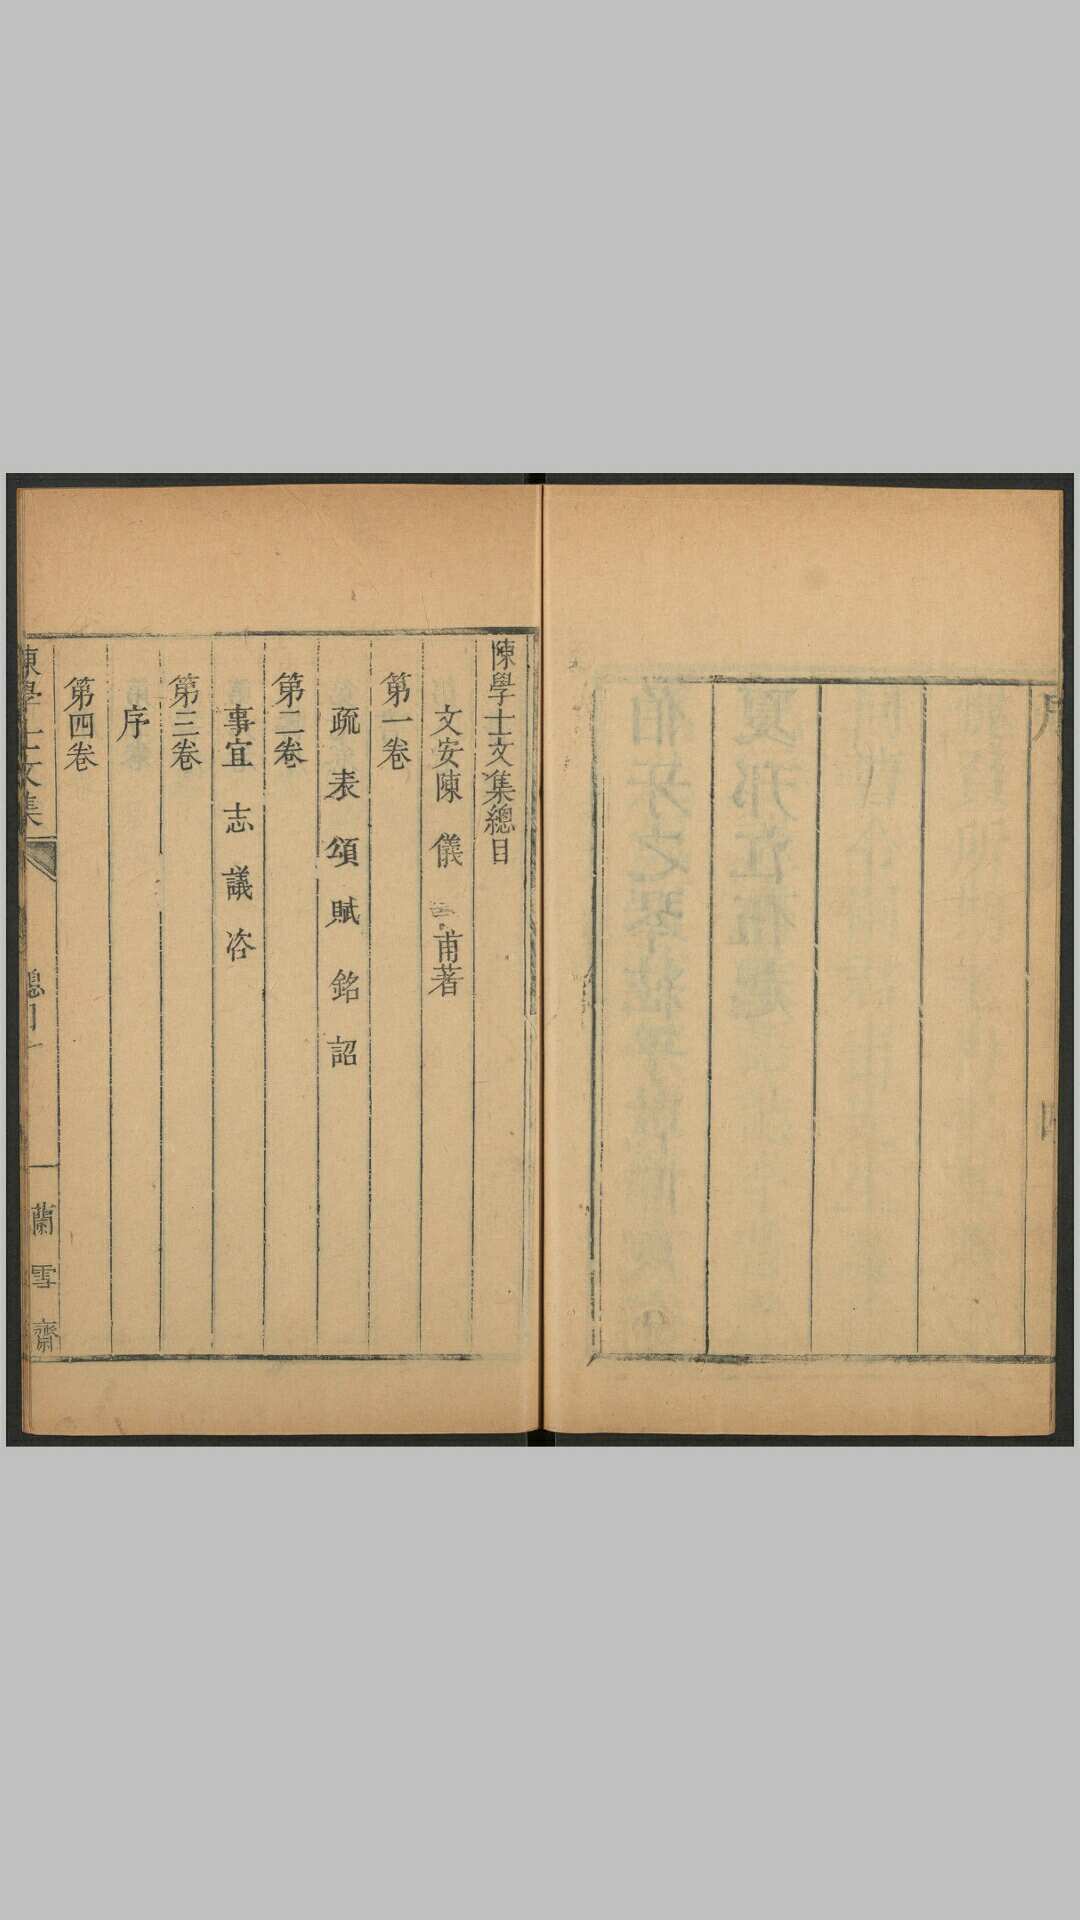 陳學士文集總目
文安陳 儀 甫著
第一卷
疏 表 頌 賦 銘 詔
第二卷
事宜 志 議 咨
第三卷
序
第四卷
陳學士文集 總目 一 蘭雪齋